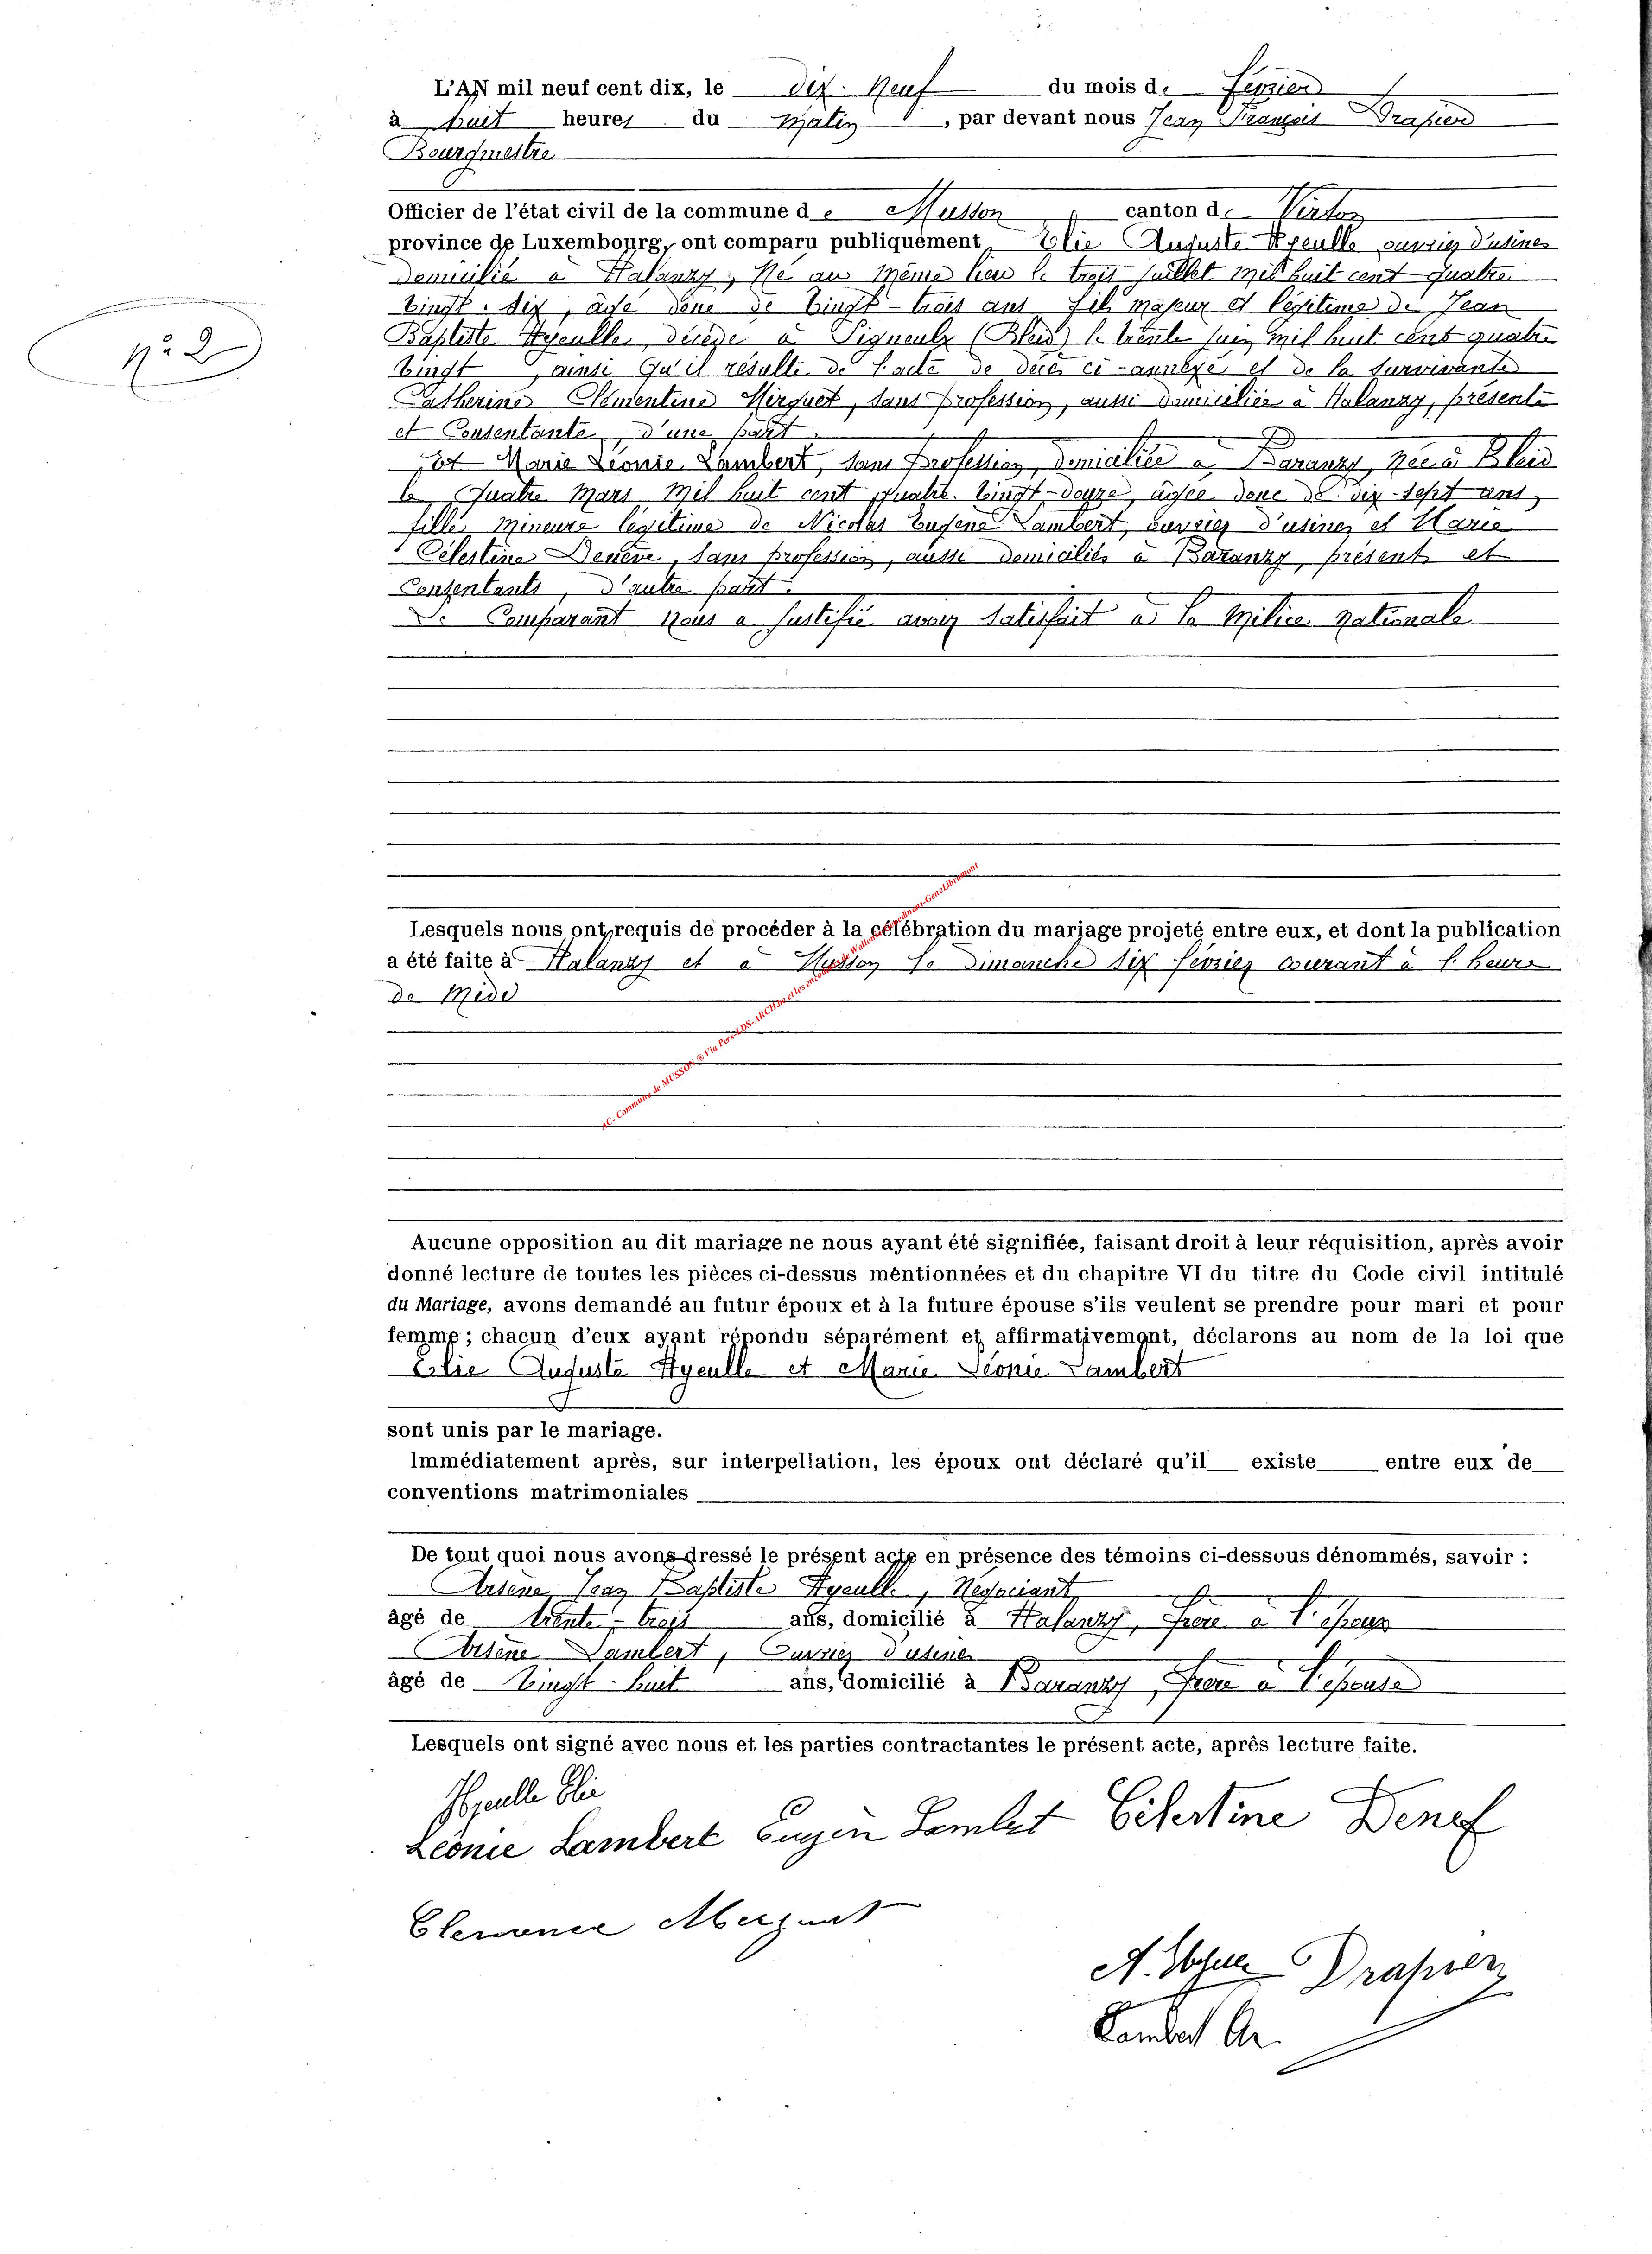 L'AN mil neuf cent dix, le dix-neuf du mois de Février
à huit heures du matin, par devant nous Jean François Drapier
Bourgmestre
Officier de l'état civil de la commune de Musson canton de Virton
province de Luxembourg, ont comparu publiquement Elie Auguste Hyeulle ouvrier d'usines
domicilié à Halanzy, né au même lieu le trois juillet mil huit cent quatre
vingt-six, âgé donc de vingt-trois ans fils majeur et légitime de Jean
Baptiste Hyeulle, décédé à Signeulx (Bleid) le trente juin mil huit cent quatre
vingt ainsi qu'il résulte de l'acte de décès ci-annexé et de la survivante
Catherine Clémentine Mirguet, sans profession, aussi domiciliée à Halanzy, présente
et Consentante, d'une part.
Et Marie Léonie Lambert, sans profession, domiciliée à Baranzy, née à Bleid
le quatre mars mil huit cent quatre-vingt-douze, âgée donc de dix-sept ans,
fille mineure légitime de Nicolas Eugène Lambert, ouvrier d'usines et Marie
Célestine Denève, sans profession, aussi domiciliés à Baranzy, présents et
Consentants, d'autre part.
Le Comparant nous a justifié avoir satisfait à la milice nationale
Nº 2
Lesquels nous ont requis de procéder à la célébration du mariage projeté entre eux, et dont la publication
a été faite à Halanzy et à Musson le dimanche six février courant à l'heure
de midi
AC- Commune de MUSSON ® Via Pers-LDS-ARCH.be et les en
Aucune opposition au dit mariage ne nous ayant été signifiée, faisant droit à leur réquisition, après avoir
donné lecture de toutes les pièces ci-dessus mentionnées et du chapitre VI du titre du Code civil intitulé
du Mariage, avons demandé au futur époux et à la future épouse s'ils veulent se prendre pour mari et pour
femme ; chacun d'eux ayant répondu séparément et affirmativement, déclarons au nom de la loi que
Elie Auguste Hyeulle et Marie Léonie Lambert
sont unis par le mariage.
Immédiatement après, sur interpellation, les époux ont déclaré qu'il existe entre eux de
conventions matrimoniales
De tout quoi nous avons dressé le présent acte en présence des témoins ci-dessous dénommés, savoir :
Arsène Jean Baptiste Hyeulle, Négociant
âgé de trente-trois ans, domicilié à Halanzy, frère à l'époux
Arsène Lambert, Ouvrier d'usines
âgé de vingt-huit ans, domicilié à Baranzy, frère à l'épouse
Lesquels ont signé avec nous et les parties contractantes le présent acte, après lecture faite.
Hyeulle Elie
Léonie Lambert Eugèn Lambert Célestine Denef
Clemence
A. Hyeulle Drapier
Lambert Ar.